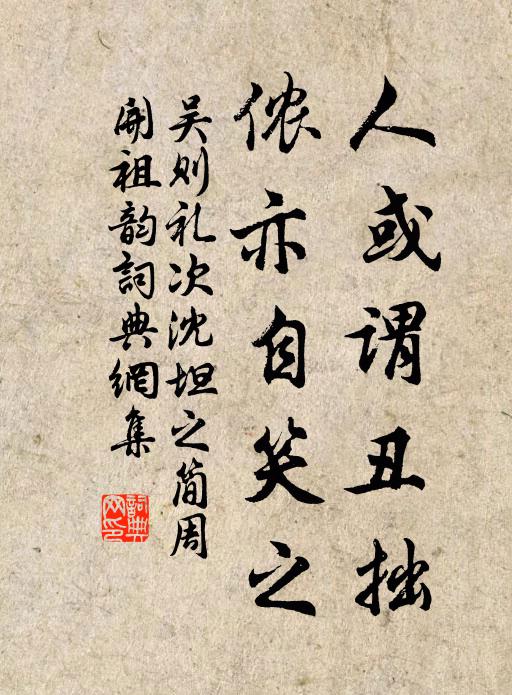 人或谓丑拙
侬亦自笑之
吴则礼次沈坦之简周
開祖韵詞典網集
詞典
网印